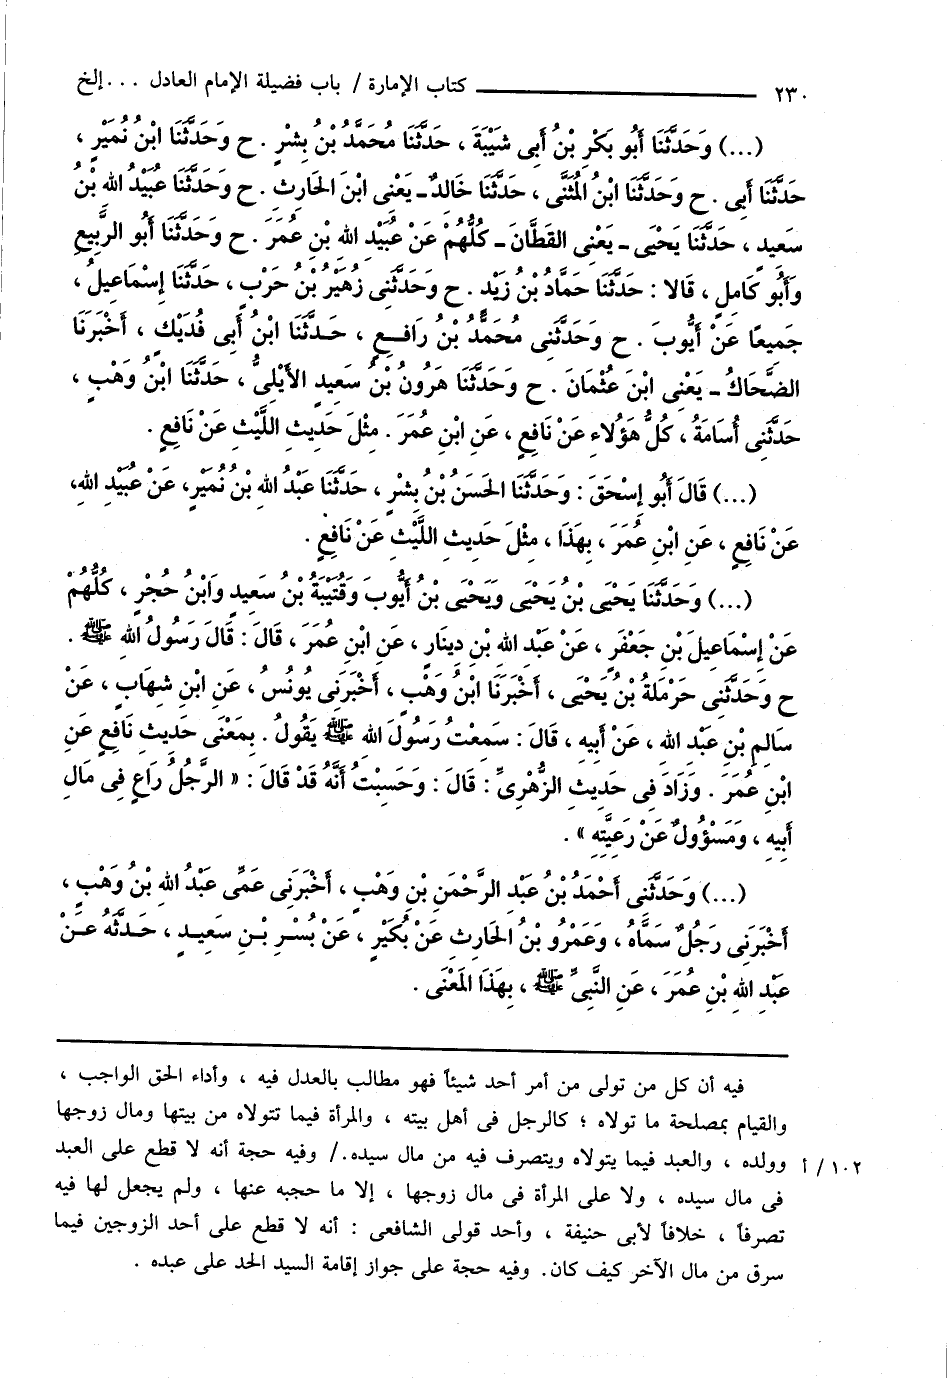 ٢٣٠ كتاب الإمارة / باب فضيلة الإمام العادل ... إلخ
(...) وَحَدَّثَنَا أَبُو بَكْرِ بْنُ أَبِى شَيْبَةَ ، حَدَّثَنَا مُحَمَّدُ بْنُ بِشْرٍ . ح وَحَدَّثَنَا ابْنُ نُمَيْرٍ ،
حَدَّثَنَا أَبِى . ح وَحَدَّثَنَا ابْنُ الْمُثَنَّى ، حَدَّثَنَا خَالِدٌ ـ يَعْنِى ابْنَ الحَارِثِ . ح وَحَدَّثَنَا عُبَيْدُ اللهِ بْنُ
سَعِيدٍ ، حَدَّثَنَا يَحْيَى ـ يَعْنِى القَطَّانَ ـ كُلُّهُمْ عَنْ عُبَيْدِ اللهِ بْنِ عُمَرَ . ح وَحَدَّثَنَا أَبُو الرَّبِيعِ
وَأَبُو كَامِلٍ ، قَالا : حَدَّثَنَا حَمَّادُ بْنُ زَيْدٍ . ح وَحَدَّثَنِى زُهَيْرُ بْنُ حَرْبٍ ، حَدَّثَنَا إِسْمَاعِيلُ ،
جَمِيعًا عَنْ أَيُّوبَ . ح وَحَدَّثَنِى مُحَمَّدُ بْنُ رَافِعٍ ، حَدَّثَنَا ابْنُ أَبِى فُدَيْكٍ ، أَخْبَرَنَا
الضَّحَّاكُ ـ يَعْنِى ابْنَ عُثْمَانَ . ح وَحَدَّثَنَا هَرُونُ بْنُ سَعِيدٍ الأَيْلِىُّ ، حَدَّثَنَا ابْنُ وَهْبٍ ،
حَدَّثَنِى أُسَامَةُ ، كُلُّ هَؤُلاءِ عَنْ نَافِعٍ ، عَنِ ابْنِ عُمَرَ . مِثْلَ حَدِيثِ اللَّيْثِ عَنْ نَافِعٍ .
(...) قَالَ أَبُو إِسْحَقَ : وَحَدَّثَنَا الحَسَنُ بْنُ بِشْرٍ ، حَدَّثَنَا عَبْدُ اللهِ بْنُ نُمَيْرٍ، عَنْ عُبَيْدِ اللهِ،
عَنْ نَافِعٍ ، عَنِ ابْنِ عُمَرَ ، بِهَذَا ، مِثْلَ حَدِيثِ اللَّيْثِ عَنْ نَافِعٍ .
(...) وَحَدَّثَنَا يَحْيَى بْنُ يَحْيَى وَيَحْيَى بْنُ أَيُّوبَ وَقُتَيْبَةُ بْنُ سَعِيدٍ وَابْنُ حُجْرٍ ، كُلُّهُمْ
عَنْ إِسْمَاعِيلَ بْنِ جَعْفَرٍ ، عَنْ عَبْدِ اللهِ بْنِ دِينَارٍ ، عَنِ ابْنِ عُمَرَ ، قَالَ : قَالَ رَسُولُ اللهِ ﷺ .
ح وَحَدَّثَنِى حَرْمَلَةُ بْنُ يَحْيَى ، أَخْبَرَنَا ابْنُ وَهْبٍ ، أَخْبَرَنِى يُونُسُ ، عَنِ ابْنِ شِهَابٍ ، عَنْ
سَالِمِ بْنِ عَبْدِ اللهِ ، عَنْ أَبِيهِ ، قَالَ : سَمِعْتُ رَسُولَ اللهِ ﷺ يَقُولُ . بِمَعْنَى حَدِيثِ نَافِعٍ عَنِ
ابْنِ عُمَرَ . وَزَادَ فِى حَدِيثِ الزُّهْرِىِّ : قَالَ : وَحَسِبْتُ أَنَّهُ قَدْ قَالَ : « الرَّجُلُ رَاعٍ فِى مَالِ
أَبِيهِ ، وَمَسْؤُولٌ عَنْ رَعِيَّتِهِ » .
(...) وَحَدَّثَنِى أَحْمَدُ بْنُ عَبْدِ الرَّحْمَنِ بْنِ وَهْبٍ ، أَخْبَرَنِى عَمِّى عَبْدُ اللهِ بْنُ وَهْبٍ ،
أَخْبَرَنِى رَجُلٌ سَمَّاهُ ، وَعَمْرُو بْنُ الحَارِثِ عَنْ بُكَيْرٍ ، عَنْ بُسْرِ بْنِ سَعِيدٍ ، حَدَّثَهُ عَنْ
عَبْدِ اللهِ بْنِ عُمَرَ ، عَنِ النَّبِىِّ ﷺ ، بِهَذَا الْمَعْنَى .
فيه أن كل من تولى من أمر أحد شيئاً فهو مطالب بالعدل فيه ، وأداء الحق الواجب ،
والقيام بمصلحة ما تولاه ؛ كالرجل فى أهل بيته ، والمرأة فيما تتولاه من بيتها ومال زوجها
١٠٢ / أ وولده ، والعبد فيما يتولاه ويتصرف فيه من مال سيده./ وفيه حجة أنه لا قطع على العبد
فى مال سيده ، ولا على المرأة فى مال زوجها ، إلا ما حجبه عنها ، ولم يجعل لها فيه
تصرفاً ، خلافاً لأبى حنيفة ، وأحد قولى الشافعى : أنه لا قطع على أحد الزوجين فيما
سرق من مال الآخر كيف كان. وفيه حجة على جواز إقامة السيد الحد على عبده .